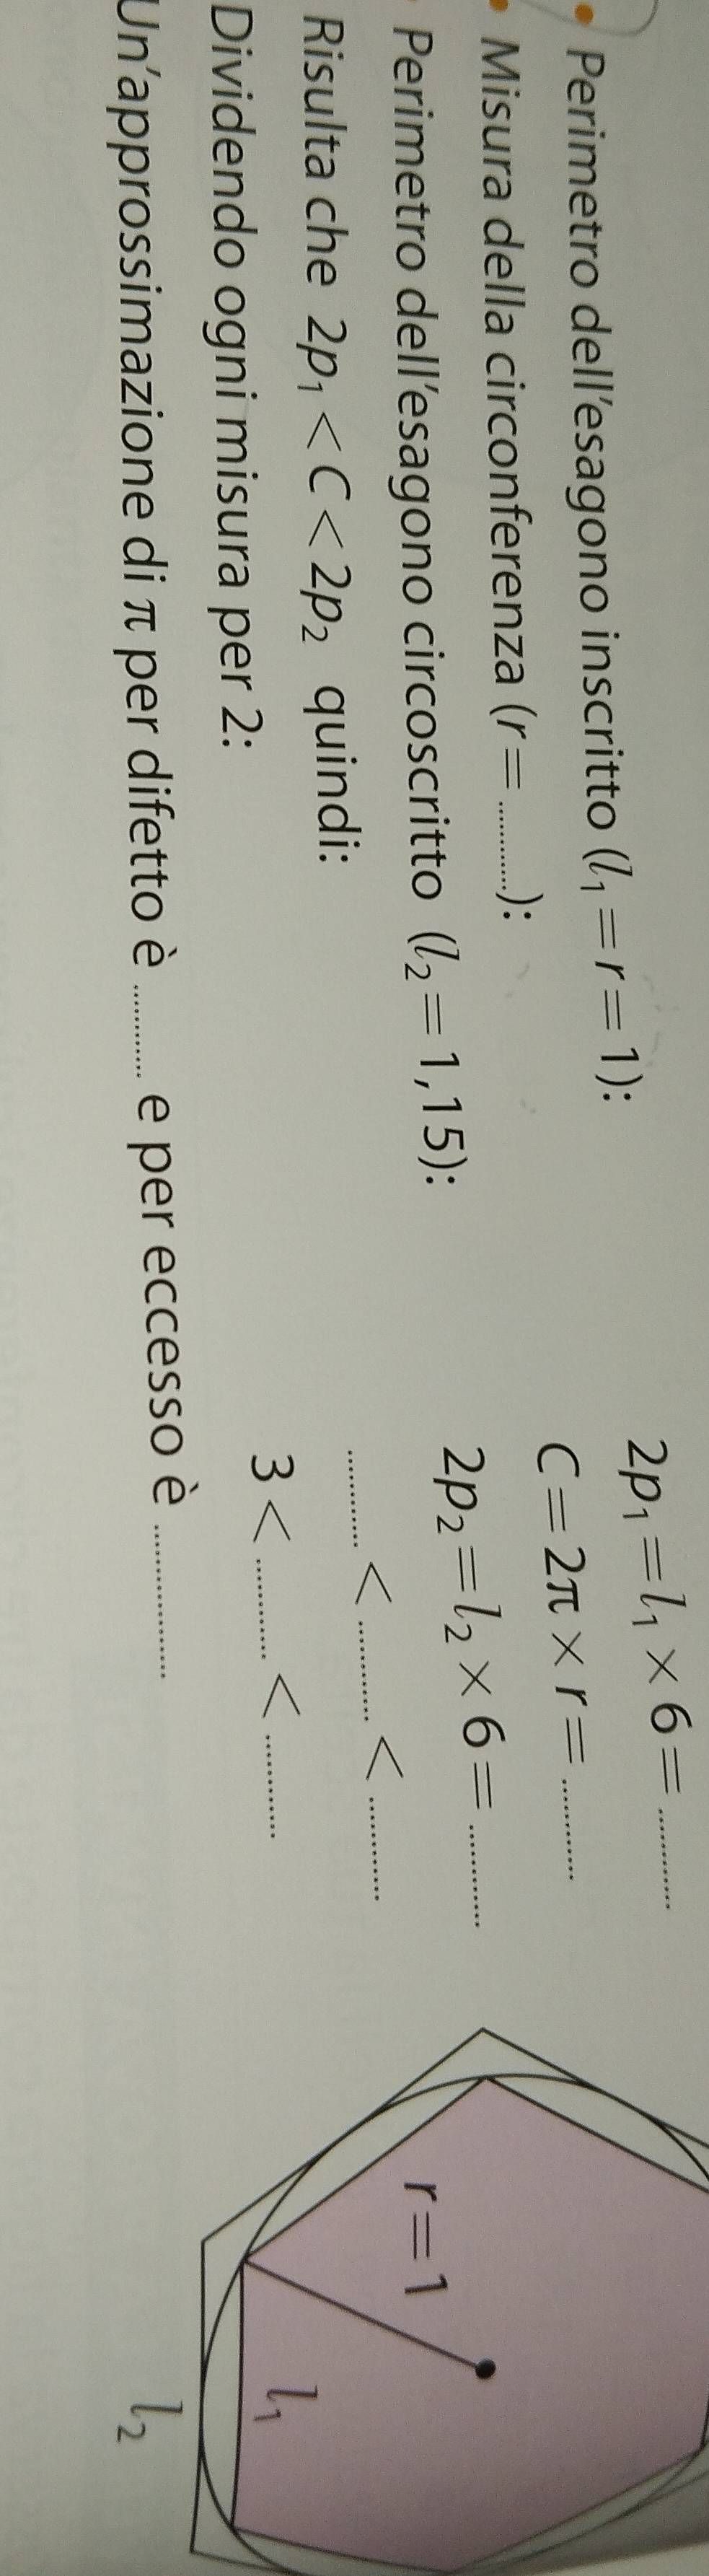 • Perimetro dell'esagono inscritto (l₁ = r = 1): 2p₁ = l₁ × 6 = ...........
• Misura della circonferenza (r = ...........): C = 2π × r = ...........
• Perimetro dell'esagono circoscritto (l₂ = 1,15): 2p₂ = l₂ × 6 = ...........
Risulta che 2p₁ < C < 2p₂ quindi: ........... < ........... < ...........
Dividendo ogni misura per 2: 3 < ........... < ...........
Un'approssimazione di π per difetto è ........... e per eccesso è ................
r = 1
l₁
l₂